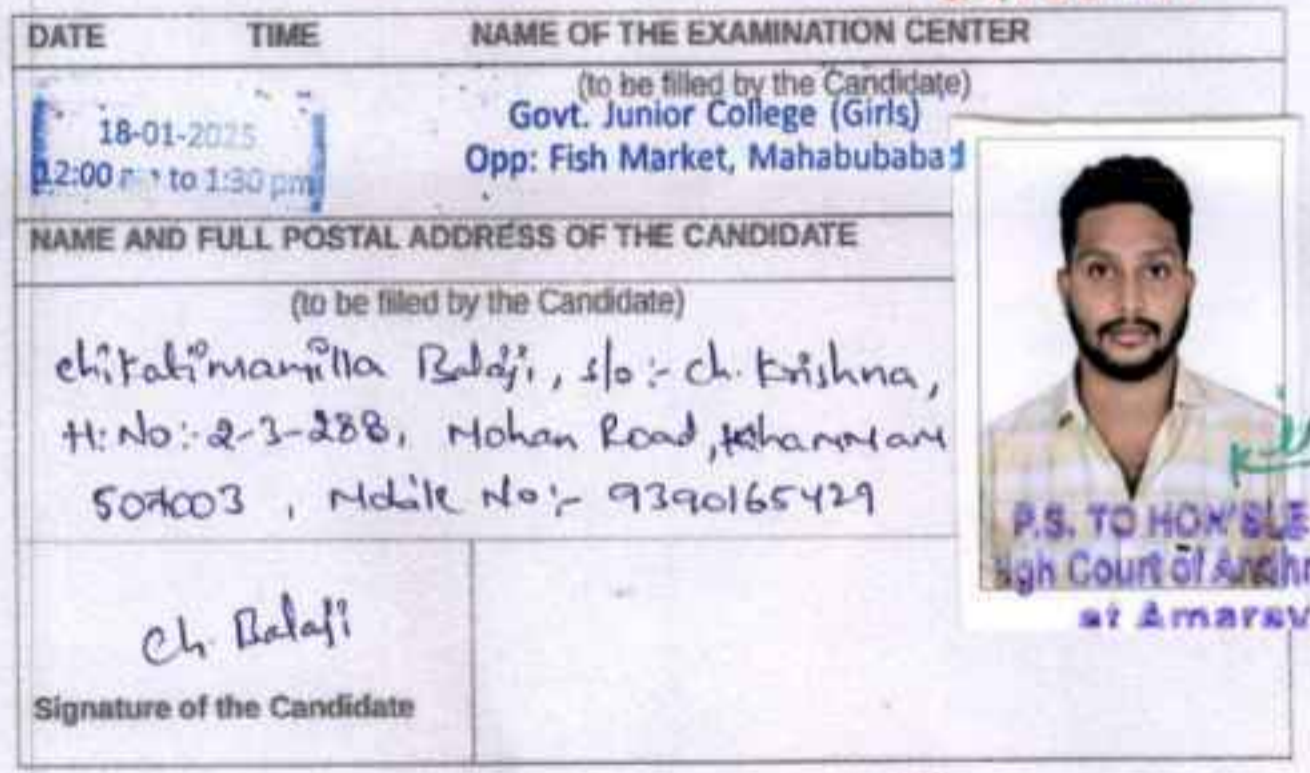 DATE TIME NAME OF THE EXAMINATION CENTER
(to be filled by the Candidate)
18-01-2025
12:00 to 1:30 pm
Govt. Junior College (Girls)
Opp: Fish Market, Mahabubabad
NAME AND FULL POSTAL ADDRESS OF THE CANDIDATE
(to be filled by the Candidate)
chikatimamilla Balaji, s/o:- ch. Krishna,
H:No:-2-3-238, Mohan Road, Khammam
507003, Mobile No:- 9390165429
P.S. TO HON'BLE
igh Court of Andhr
at Amarav
Ch. Balaji
Signature of the Candidate